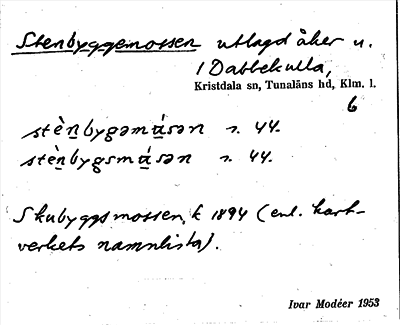 Stenbyggemossen utlagd åker u.
1 Dabbekulla,
Kristdala sn, Tunaläns hd, Klm. l.
6
stè̱nbygəmá̱sən s. 44.
stè̱nbygsmá̱sən s. 44.
Skubyggsmossen k 1894 (enl. kart-
verkets namnlista).
Ivar Modéer 1953